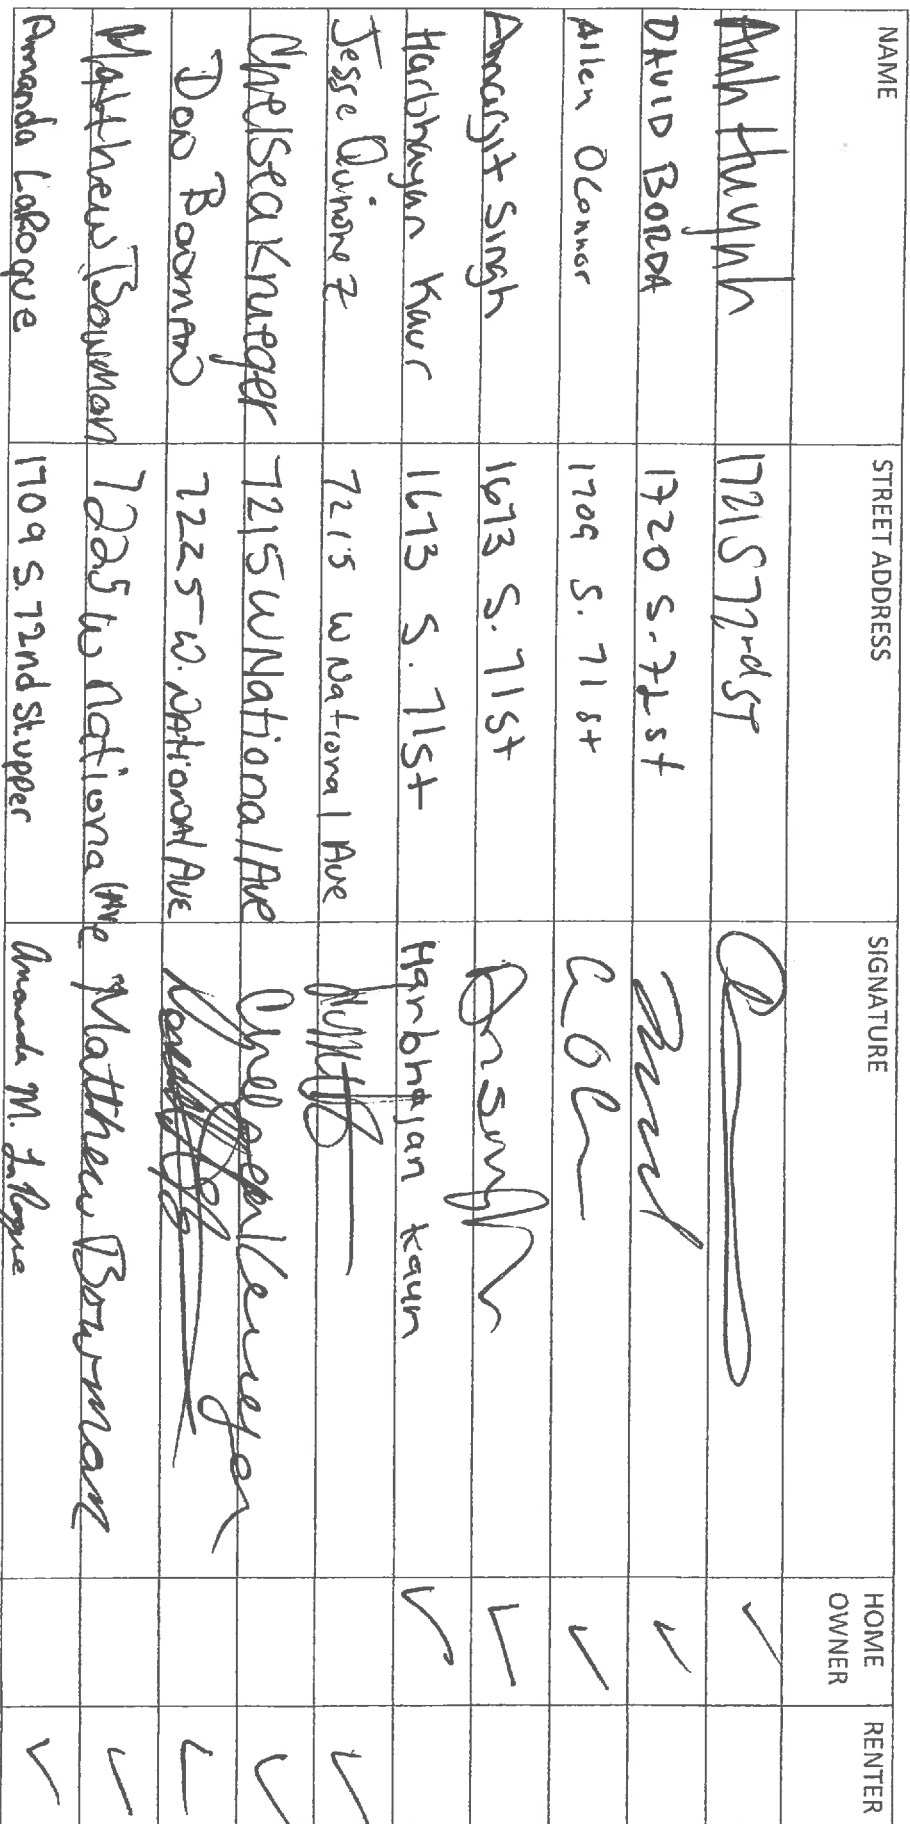 NAME STREET ADDRESS SIGNATURE HOME OWNER RENTER
Anh Huynh 1721 S 72nd ST ✓
DAVID BORDA 1720 S. 71st ✓
Allen OConnor 1709 S. 71st ✓
Amarjit Singh 1673 S. 71st ✓
Harbhayan Kaur 1673 S. 71st Harbhajan Kaur ✓
Jesse Quinonez 7215 W National Ave ✓
Chelsea Krueger 7215 W National Ave Chelsea Krueger ✓
Don Bowman 7225 W. National Ave ✓
Matthew Bowman 7225 W national Ave Matthew Bowman ✓
Amanda LaRoque 1709 S. 72nd St upper Amanda M. LaRoque ✓